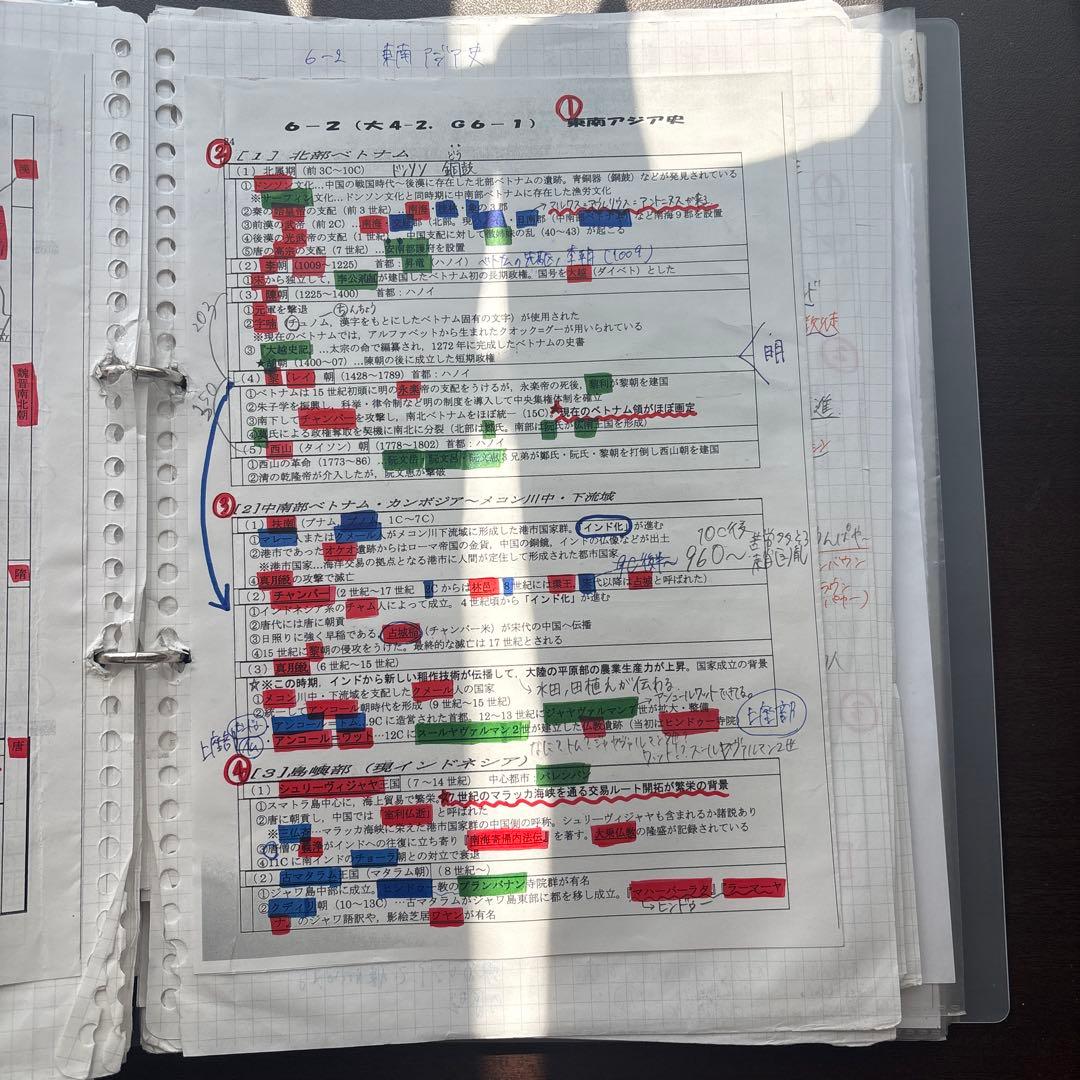 6-2 東南アジア史
①
6-2 (大4-2, G6-1) 東南アジア史
84
② [1] 北部ベトナム
(1) 北属期 (前3C~10C) ドンソン 銅鼓 どう
①ドンソン文化…中国の戦国時代~後漢に存在した北部ベトナムの遺跡。青銅器(銅鼓)などが発見されている
※サーフィン文化…ドンソン文化と同時期に中南部ベトナムに存在した漁労文化
②秦の始皇帝の支配(前3世紀)…南海・ の3郡
③前漢の武帝(前2C)…南海・ 郡(北部。現 ・日南郡(中南部ベトナム)など南海9郡を設置
④後漢の光武帝の支配(1世紀) 中国支配に対して徴姉妹の乱(40~43)が起こる
⑤唐の高宗の支配(7世紀)…安南都護府を設置
(2) 李朝 (1009~1225) 首都:昇竜(ハノイ) (1009)
①宋から独立して、李公蘊が建国したベトナム初の長期政権。国号を大越(ダイベト)とした
(3) 陳朝 (1225~1400) 首都:ハノイ
①元軍を撃退 ちんちょう
②字喃(チュノム,漢字をもとにしたベトナム固有の文字)が使用された
※現在のベトナムでは,アルファベットから生まれたクオック=グーが用いられている
③『大越史記』…太宗の命で編纂され,1272年に完成したベトナムの史書
★胡朝(1400~07)…陳朝の後に成立した短期政権
明
(4) 黎(レイ)朝 (1428~1789) 首都:ハノイ
①ベトナムは15世紀初頭に明の永楽帝の支配をうけるが,永楽帝の死後,黎利が黎朝を建国
②朱子学を振興し,科挙・律令制など明の制度を導入して中央集権体制を確立
③南下してチャンパーを攻撃し,南北ベトナムをほぼ統一(15C)★現在のベトナム領がほぼ画定
④莫氏による政権奪取を契機に南北に分裂(北部は鄭氏。南部は阮氏が広南王国を形成)
(5) 西山(タイソン)朝 (1778~1802) 首都:ハノイ
①西山の革命(1773~86)…阮文岳・阮文呂・阮文恵3兄弟が鄭氏・阮氏・黎朝を打倒し西山朝を建国
②清の乾隆帝が介入したが,阮文恵が撃破
③ [2] 中南部ベトナム・カンボジア~メコン川中・下流域
(1) 扶南 (プナム,プノム 1C~7C)
①マレー人またはクメール人がメコン川下流域に形成した港市国家群。「インド化」が進む
②港市であったオケオ遺跡からはローマ帝国の金貨,中国の銅鏡,インドの仏像などが出土
※港市国家…海洋交易の拠点となる港市に人間が定住して形成された都市国家
10C後
960~
④真臘の攻撃で滅亡
(2) チャンパー (2世紀~17世紀 2Cからは林邑,8世紀には環王, 代以降は占城と呼ばれた)
①インドネシア系のチャム人によって成立。4世紀頃から「インド化」が進む
②唐代には唐に朝貢
③日照りに強く早稲である占城稲(チャンパー米)が宋代の中国へ伝播
④15世紀に黎朝の侵攻をうけた。最終的な滅亡は17世紀とされる
(3) 真臘 (6世紀~15世紀)
☆※この時期,インドから新しい稲作技術が伝播して,大陸の平原部の農業生産力が上昇。国家成立の背景
→水田,田植えが伝わる
①メコン川中・下流域を支配したクメール人の国家
② アンコール朝時代を形成(9世紀~15世紀)
アンコールワットできる。
・アンコール=トム…9Cに造営された首都。12~13世紀にジャヤヴァルマン7世が拡大・整備
・アンコール=ワット…12Cにスールヤヴァルマン2世が建立した仏教遺跡(当初はヒンドゥー寺院)
上座部
④ [3] 島嶼部 (現インドネシア)
(1) シュリーヴィジャヤ王国 (7~14世紀) 中心都市:パレンバン
①スマトラ島中心に,海上貿易で繁栄。★7世紀のマラッカ海峡を通る交易ルート開拓が繁栄の背景
②唐に朝貢し,中国では「室利仏逝」と呼ばれた
※三仏斉…マラッカ海峡に栄えた港市国家群の中国側の呼称。シュリーヴィジャヤも含まれるか諸説あり
③唐僧の義浄がインドへの往復に立ち寄り『南海寄帰内法伝』を著す。大乗仏教の隆盛が記録されている
④11Cに南インドのチョーラ朝との対立で衰退
(2) 古マタラム王国 (マタラム朝) (8世紀~)
①ジャワ島中部に成立。ヒンドゥー教のプランバナン寺院群が有名
②クディリ朝(10~13C)…古マタラムがジャワ島東部に都を移し成立。『マハーバーラタ』『ラーマーヤ
ナ』のジャワ語訳や,影絵芝居ワヤンが有名
→ヒンドゥー
漢
魏晋南北朝
隋
唐